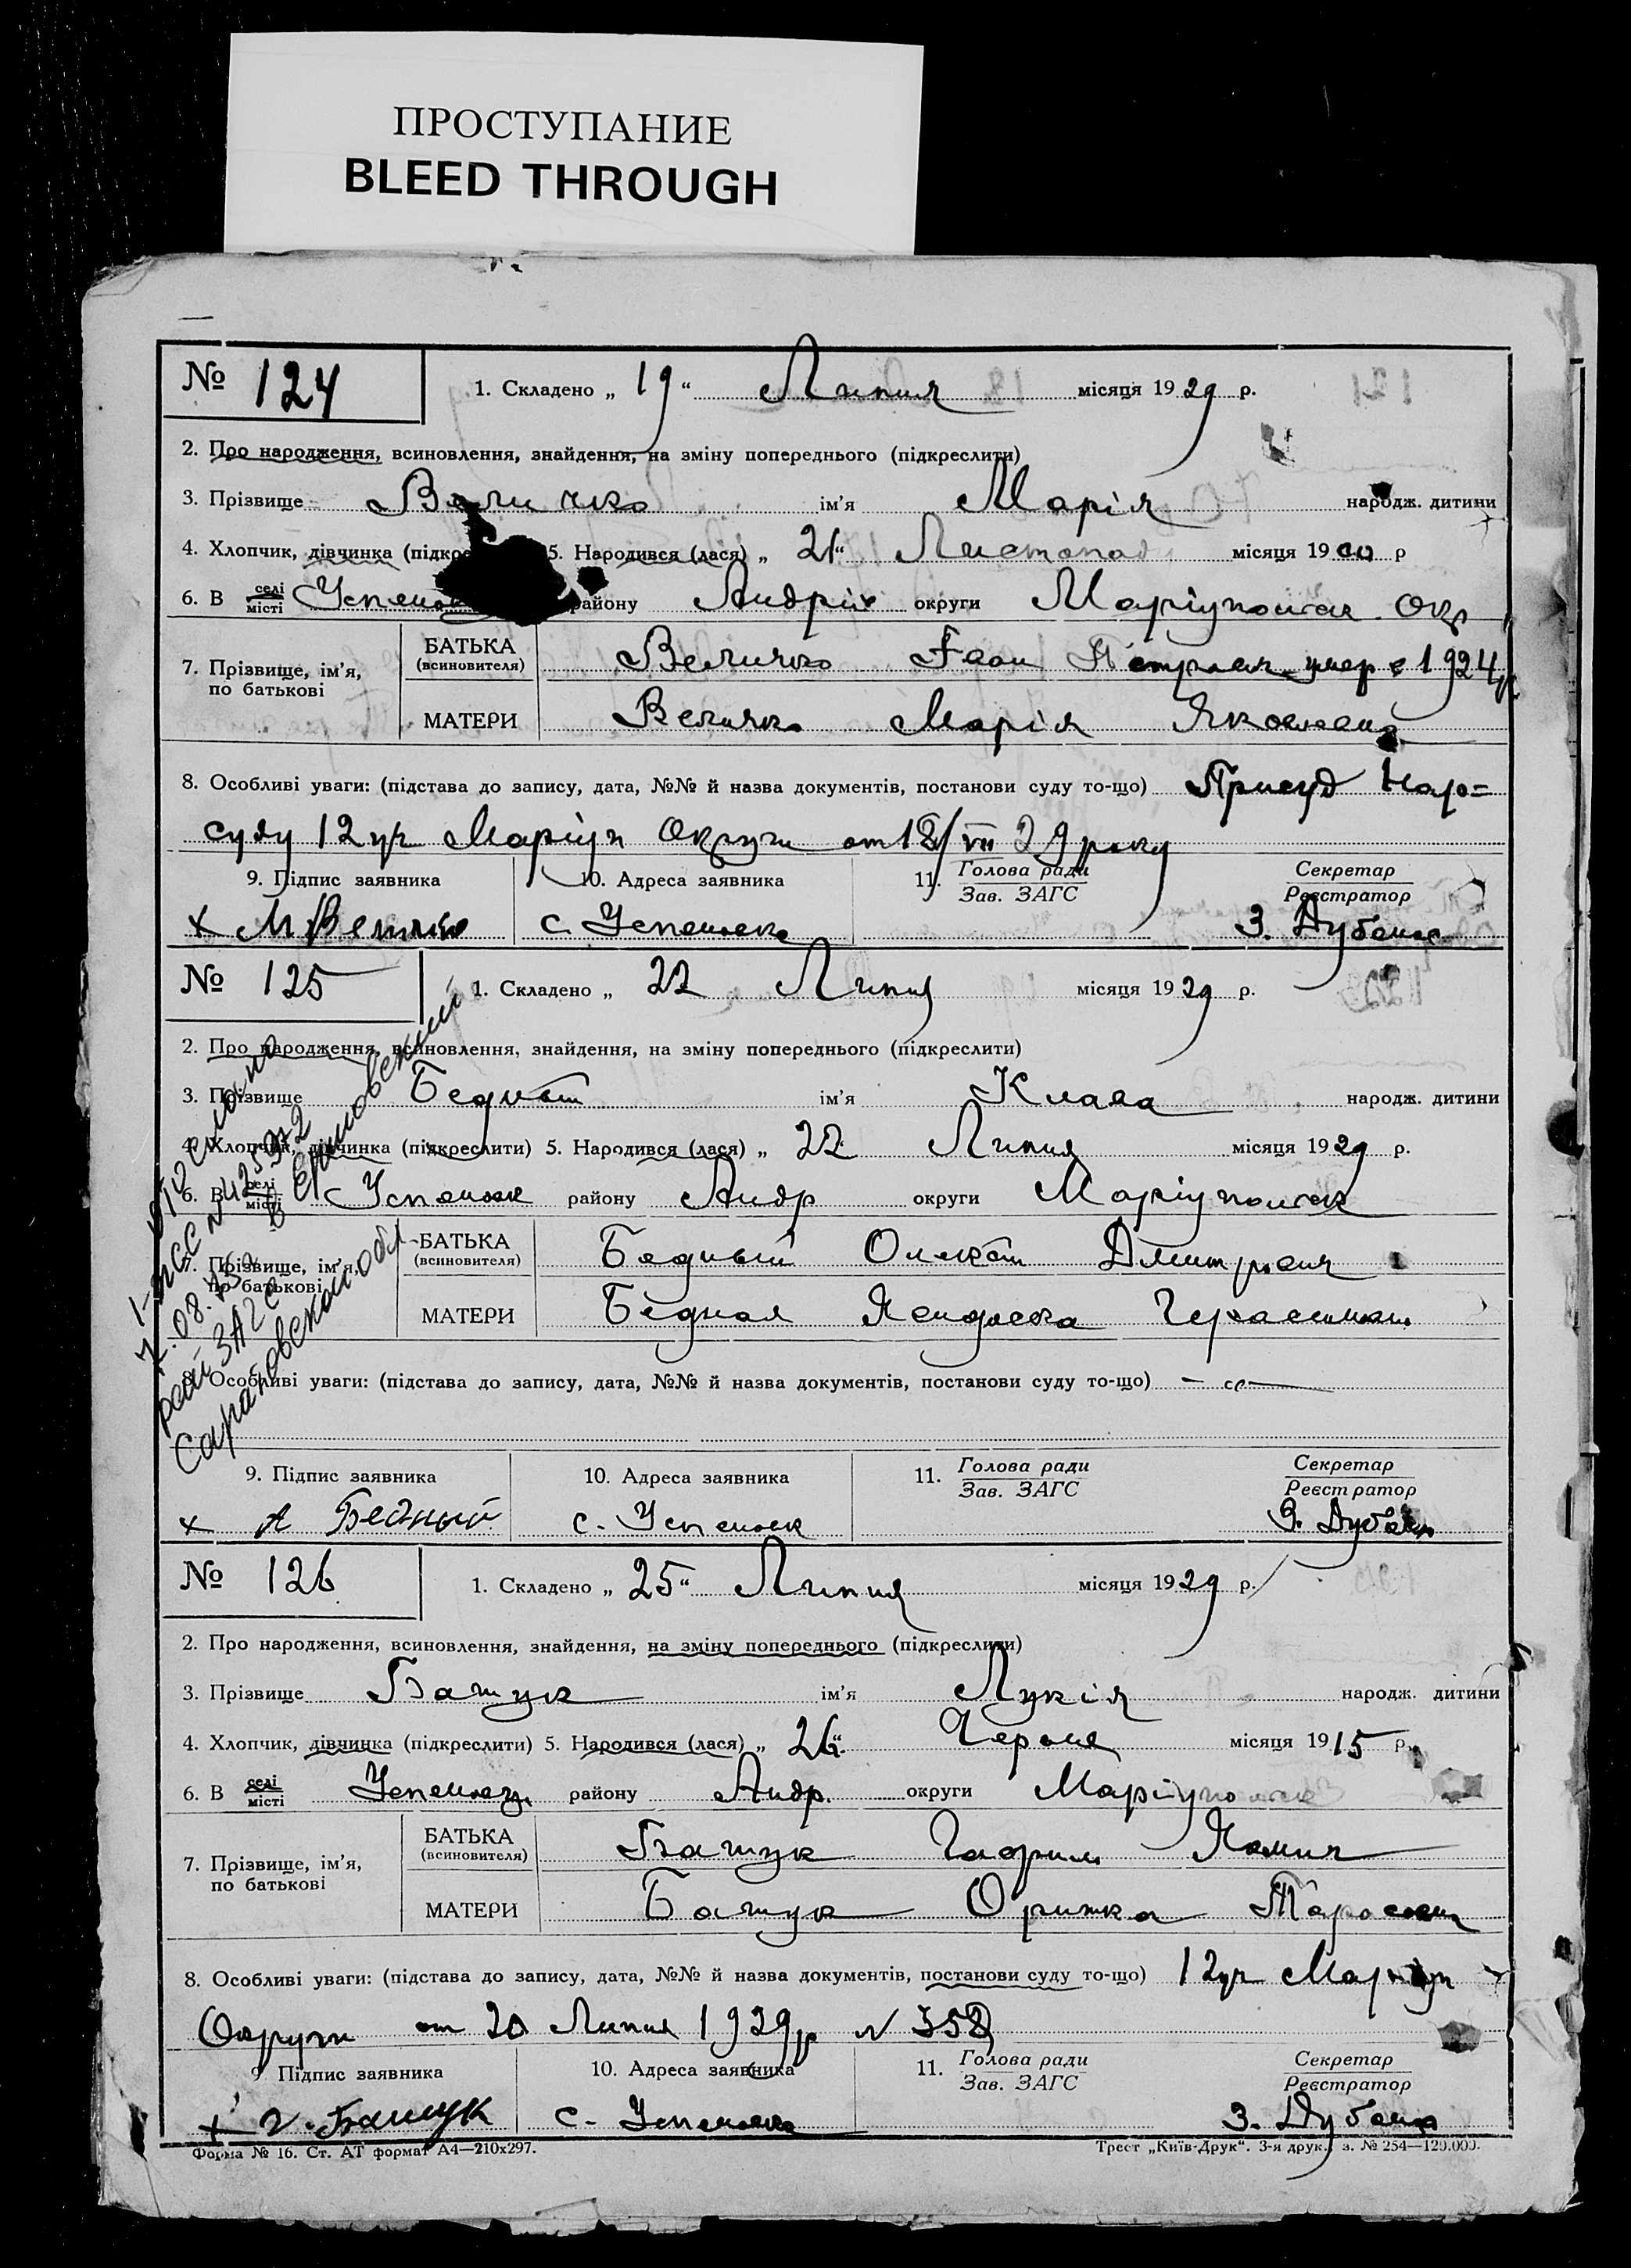 ПРОСТУПАНИЕ
BLEED THROUGH
№ 124 1. Складено „ 19 “ Липня місяця 1929 р.
2. Про народження, всиновлення, знайдення, на зміну попереднього (підкреслити)
3. Прізвище Величко ім'я Марія народж. дитини
4. Хлопчик, дівчинка (підкре 5. Народився (лася) „ 21 “ Листопад місяця 1900 р
6. В селі місті району Андрів округи Маріупольск Окр
7. Прізвище, ім'я, по батькові
БАТЬКА (всиновителя) Величко Іван Петрович умер в 1924 р
МАТЕРИ Величко Марія Яковлевна
8. Особліві уваги: (підстава до запису, дата, №№ й назва документів, постанови суду то-що) Присуд Нар=
суду 12 уч Маріуп Округи от 18/VII 29 року
9. Підпис заявника 10. Адреса заявника 11. Голова ради Зав. ЗАГС Секретар Реєстратор
х М Величко с. Успеновка З. Дубена
№ 125 1. Складено „ 22 Липня місяця 1929 р.
2. Про народження, всиновлення, знайдення, на зміну попереднього (підкреслити)
3. Прізвище Бедный ім'я Клава народж. дитини
4. Хлопчик, дівчинка (підкреслити) 5. Народився (лася) „ 22 Липня місяця 1929 р.
6. В селі місті Успеновк району Андр округи Маріупольск
7. Прізвище, ім'я, по батькові
БАТЬКА (всиновителя) Бедный Дмитрович
МАТЕРИ Бедная Герасимовн
8. Особливі уваги: (підстава до запису, дата, №№ й назва документів, постанови суду то-що)
9. Підпис заявника 10. Адреса заявника 11. Голова ради Зав. ЗАГС Секретар Реєстратор
х А Бедный с. Успеновк З. Дубена
I-ЖС №
рай ЗАГС
Саратовской обл
№ 126 1. Складено „ 25 “ Липня місяця 1929 р.
2. Про народження, всиновлення, знайдення, на зміну попереднього (підкреслити)
3. Прізвище Башук ім'я Лукія народж. дитини
4. Хлопчик, дівчинка (підкреслити) 5. Народився (лася) „ 26 “ Червня місяця 1915 р.
6. В селі місті Успеновц району Андр. округи Маріупольск
7. Прізвище, ім'я, по батькові
БАТЬКА (всиновителя) Башук Гаврило
МАТЕРИ Башук Оришка Тарасовн
8. Особливі уваги: (підстава до запису, дата, №№ й назва документів, постанови суду то-що) 12 уч Маріуп
Округи от 20 Липня 1929 р № 358
9 Підпис заявника 10. Адреса заявника 11. Голова ради Зав. ЗАГС Секретар Реєстратор
х Г. Башук с. Успеновка З. Дубена
Форма № 16. Ст. АТ формат А4—210х297. Трест „Київ-Друк“. 3-я друк., з. № 254—120.000.